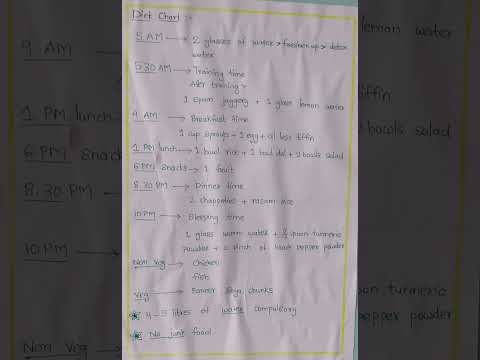 Diet Chart :-
5 AM → 2 glasses of water > freshen up > detox
water
5:30 AM → Training time
After training >
1 spoon jaggery + 1 glass lemon water
9 AM → Breakfast time
1 cup sprouts + 1 egg + oil less tiffin
1 PM lunch → 1 bowl rice + 1 bowl dal + 2 bowls salad
6 PM snacks → 1 fruit
8.30 PM → Dinner time
2 chapathies +
10 PM → Sleeping time
1 glass warm water + ½ spoon turmeric
powder + a pinch of black pepper powder
Non veg → Chicken
fish
Veg → Paneer Soya chunks
4-5 litres of water compulsory
No junk food.